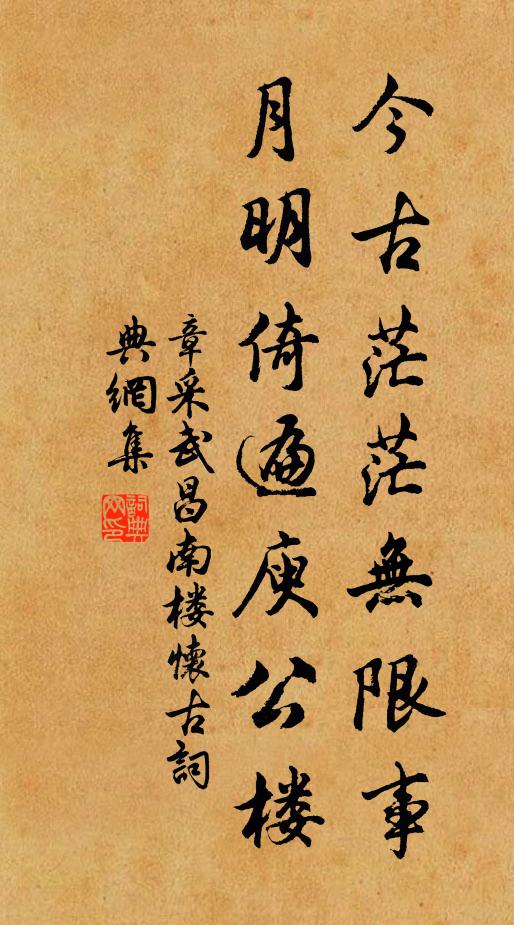 今古茫茫無限事
月明倚遍庾公楼
章采武昌南楼懷古詞
典網集
詞典網印